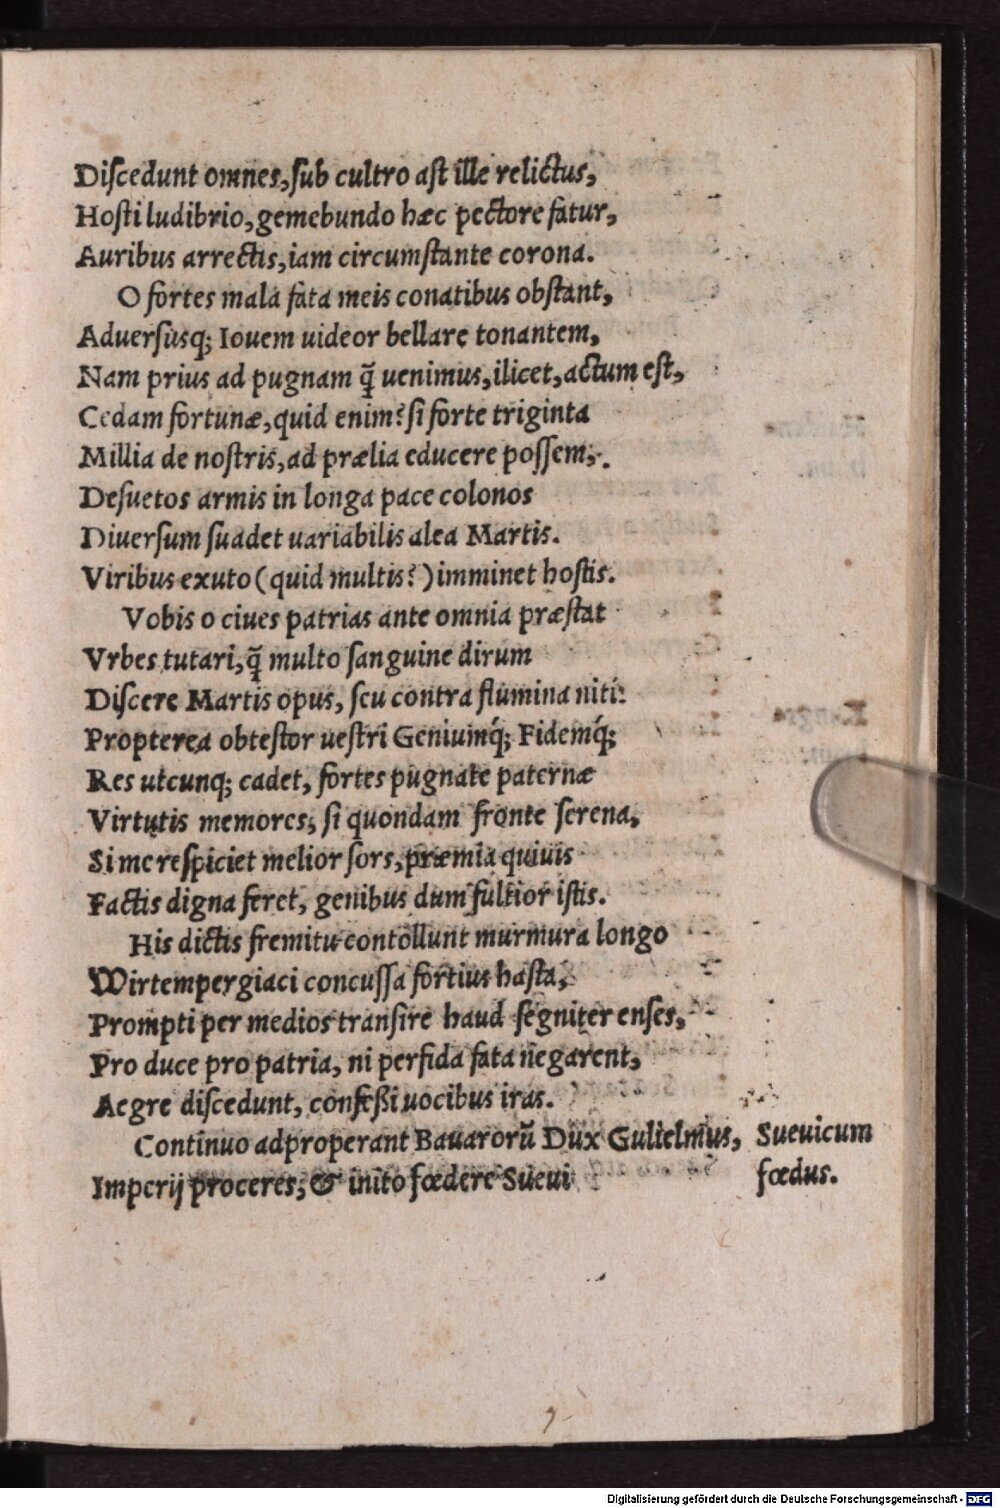 Discedunt omnes, sub cultro ast ille relictus,
Hosti ludibrio, gemebundo hæc pectore fatur,
Auribus arrectis, iam circumstante corona.
O fortes mala fata meis conatibus obstant,
Aduersusq; Iouem uideor bellare tonantem,
Nam prius ad pugnam q̃ uenimus, ilicet, actum est,
Cedam fortunæ, quid enim? si forte triginta
Millia de nostris, ad prælia educere possem,
Desuetos armis in longa pace colonos
Diuersum suadet uariabilis alea Martis.
Viribus exuto (quid multis?) imminet hostis.
Vobis o ciues patrias ante omnia præstat
Vrbes tutari, q̃ multo sanguine dirum
Discere Martis opus, seu contra flumina niti:
Propterea obtestor uestri Geniumq́; Fidemq́;
Res utcunq; cadet, fortes pugnate paternæ
Virtutis memores, si quondam fronte serena,
Si me respiciet melior sors, præmia quiuis
Factis digna feret, genibus dum fultior istis.
His dictis fremitu contollunt murmura longo
Wirtempergiaci concussa fortius hasta,
Prompti per medios transire haud segniter enses,
Pro duce pro patria, ni perfida fata negarent,
Aegre discedunt, confeßi uocibus iras.
Continuo adproperant Bauarorũ Dux Gulielmus, Sueuicum
Imperij proceres, & inito fœdere Sueui fœdus.
Digitalisierung gefördert durch die Deutsche Forschungsgemeinschaft - DFG